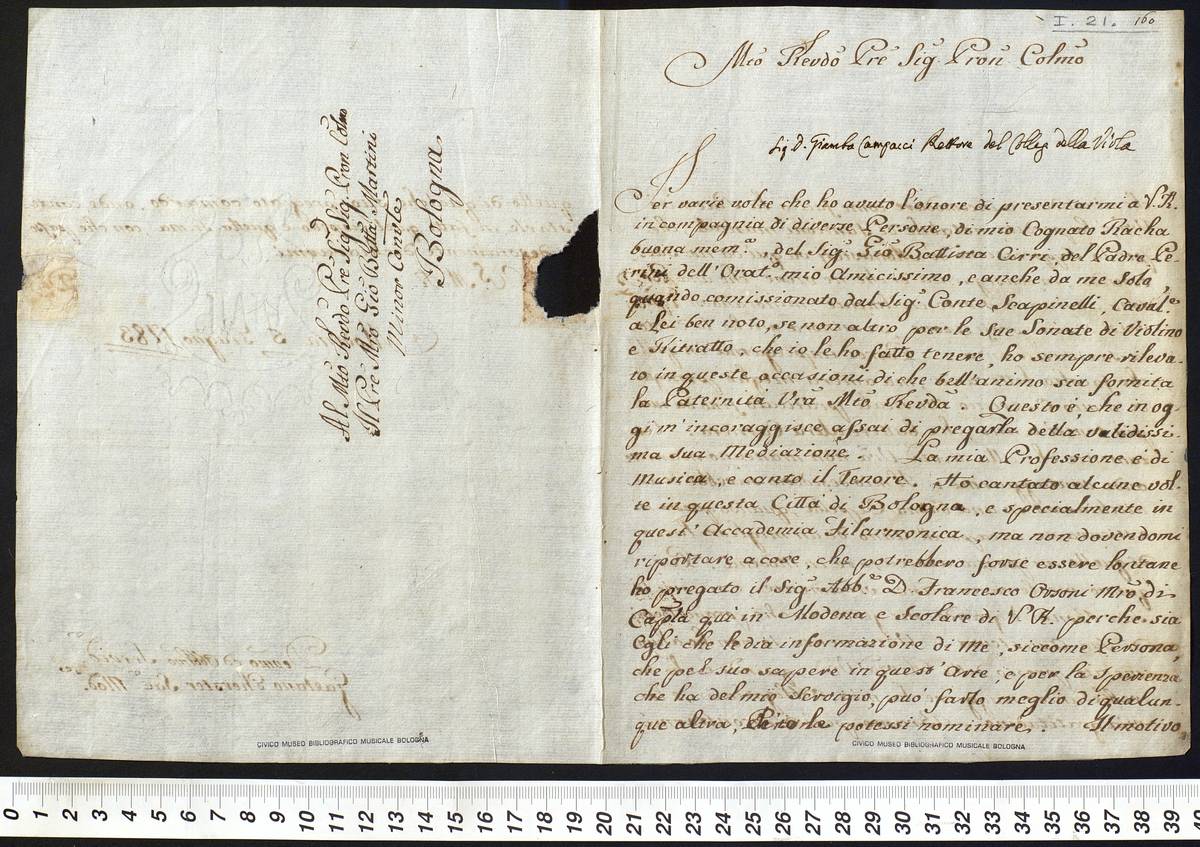 I. 21. 160
Mio Revdo Pre Sig. Pron Colmo
Sig D. Giamba Campacci Rettore del Colleg della Viola
Per varie volte che ho avuto l'onore di presentarmi a V. R.
in compagnia di diverse Persone, di mio Cognato Racha
buona mem.a, del Sig.r Gio Battista Cirri, del Padre Pe-
rini dell'Orat.o mio Amicissimo, e anche da me solo,
quando comissionato dal Sig.r Conte Scapinelli, Caval.e
a Lei ben noto, se non altro per le Sue Sonate di Violino
e Ritratto, che io le ho fatto tenere, ho sempre rileva-
to in queste occasioni di che bell'animo sia fornita
la Paternità Vra Mio Revda. Questo è, che in og-
gi m'incoraggisce assai di pregarla della validissi-
ma sua Mediazione. La mia Professione è di
Musica, e canto il Tenore. Ho cantato alcune vol-
te in questa Città di Bologna, e specialmente in
quest'Accademia Filarmonica, ma non dovendomi
riportare a cose, che potrebbero forse essere lontane
ho pregato il Sig.r Abb.e D. Francesco Orsoni Mro di
Capla qui in Modena e Scolare di V. R. perche sia
Egli che le dia informazione di me, siccome Persona,
che pel suo sapere in quest'Arte, e per la sperienza
che ha del mio Servigio, può farlo meglio di qualun-
que altra, potessi nominare. Il motivo
Al Mio Revdo Pre Sig. Sig. Pron Colmo
Il Pre Mro Gio Batta Martini
Minor Convnle
Bologna
5 Luglio 1783
CIVICO MUSEO BIBLIOGRAFICO MUSICALE BOLOGNA
CIVICO MUSEO BIBLIOGRAFICO MUSICALE BOLOGNA
0 1 2 3 4 5 6 7 8 9 10 11 12 13 14 15 16 17 18 19 20 21 22 23 24 25 26 27 28 29 30 31 32 33 34 35 36 37 38 39 40